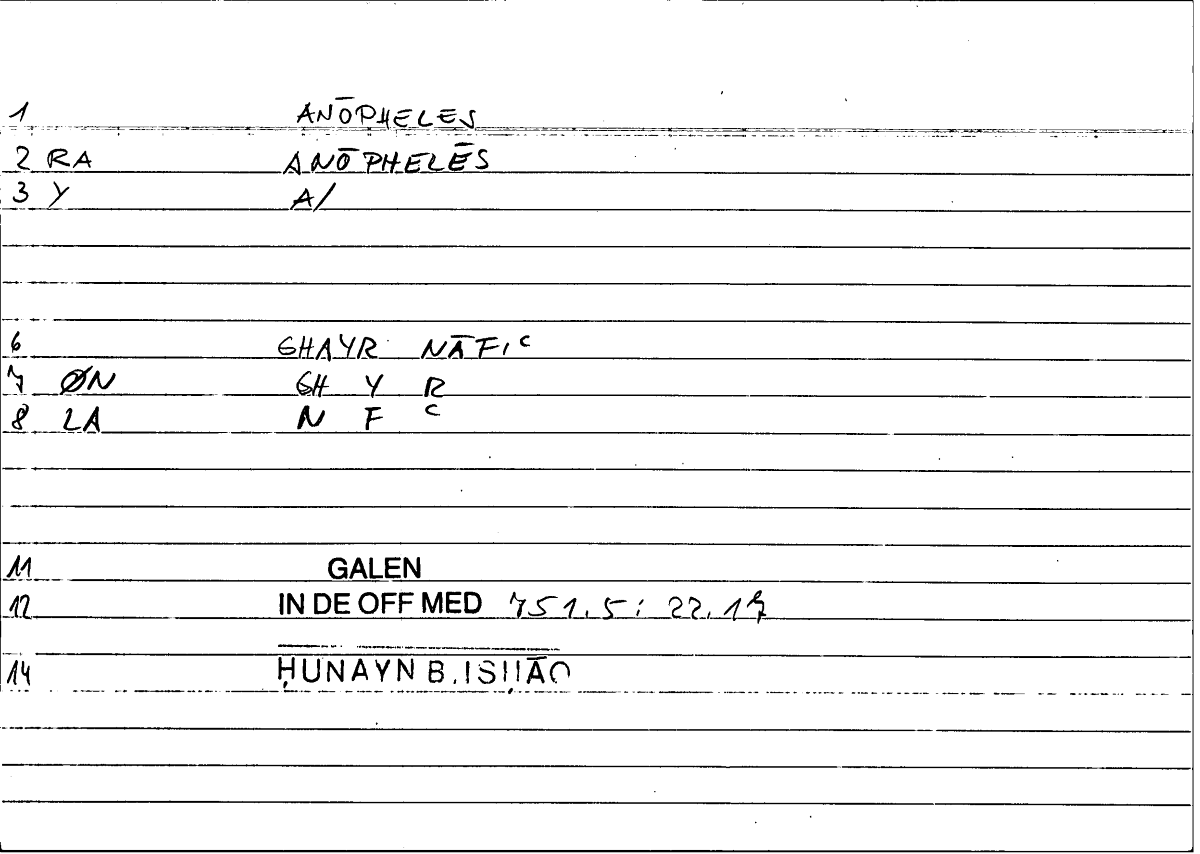 1 ANŌPHELES
2 RA ANŌPHELĒS
3 Y A/
6 GHAYR NĀFIᶜ
7 ØN GH Y R
8 LA N F ᶜ
11 GALEN
12 IN DE OFF MED 751.5: 22.17
14 ḤUNAYN B.ISḤĀQ